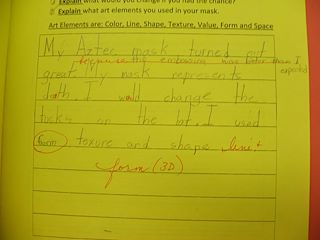 Explain what would you change if you had the chance?
Explain what art elements you used in your mask.
Art Elements are: Color, Line, Shape, Texture, Value, Form and Space
My Aztec mask turned out
because the embossing was better than I expected
great. My mask represents
death. I would change the
tusks on the bt. I used
form texure and shape line +
form (3D)